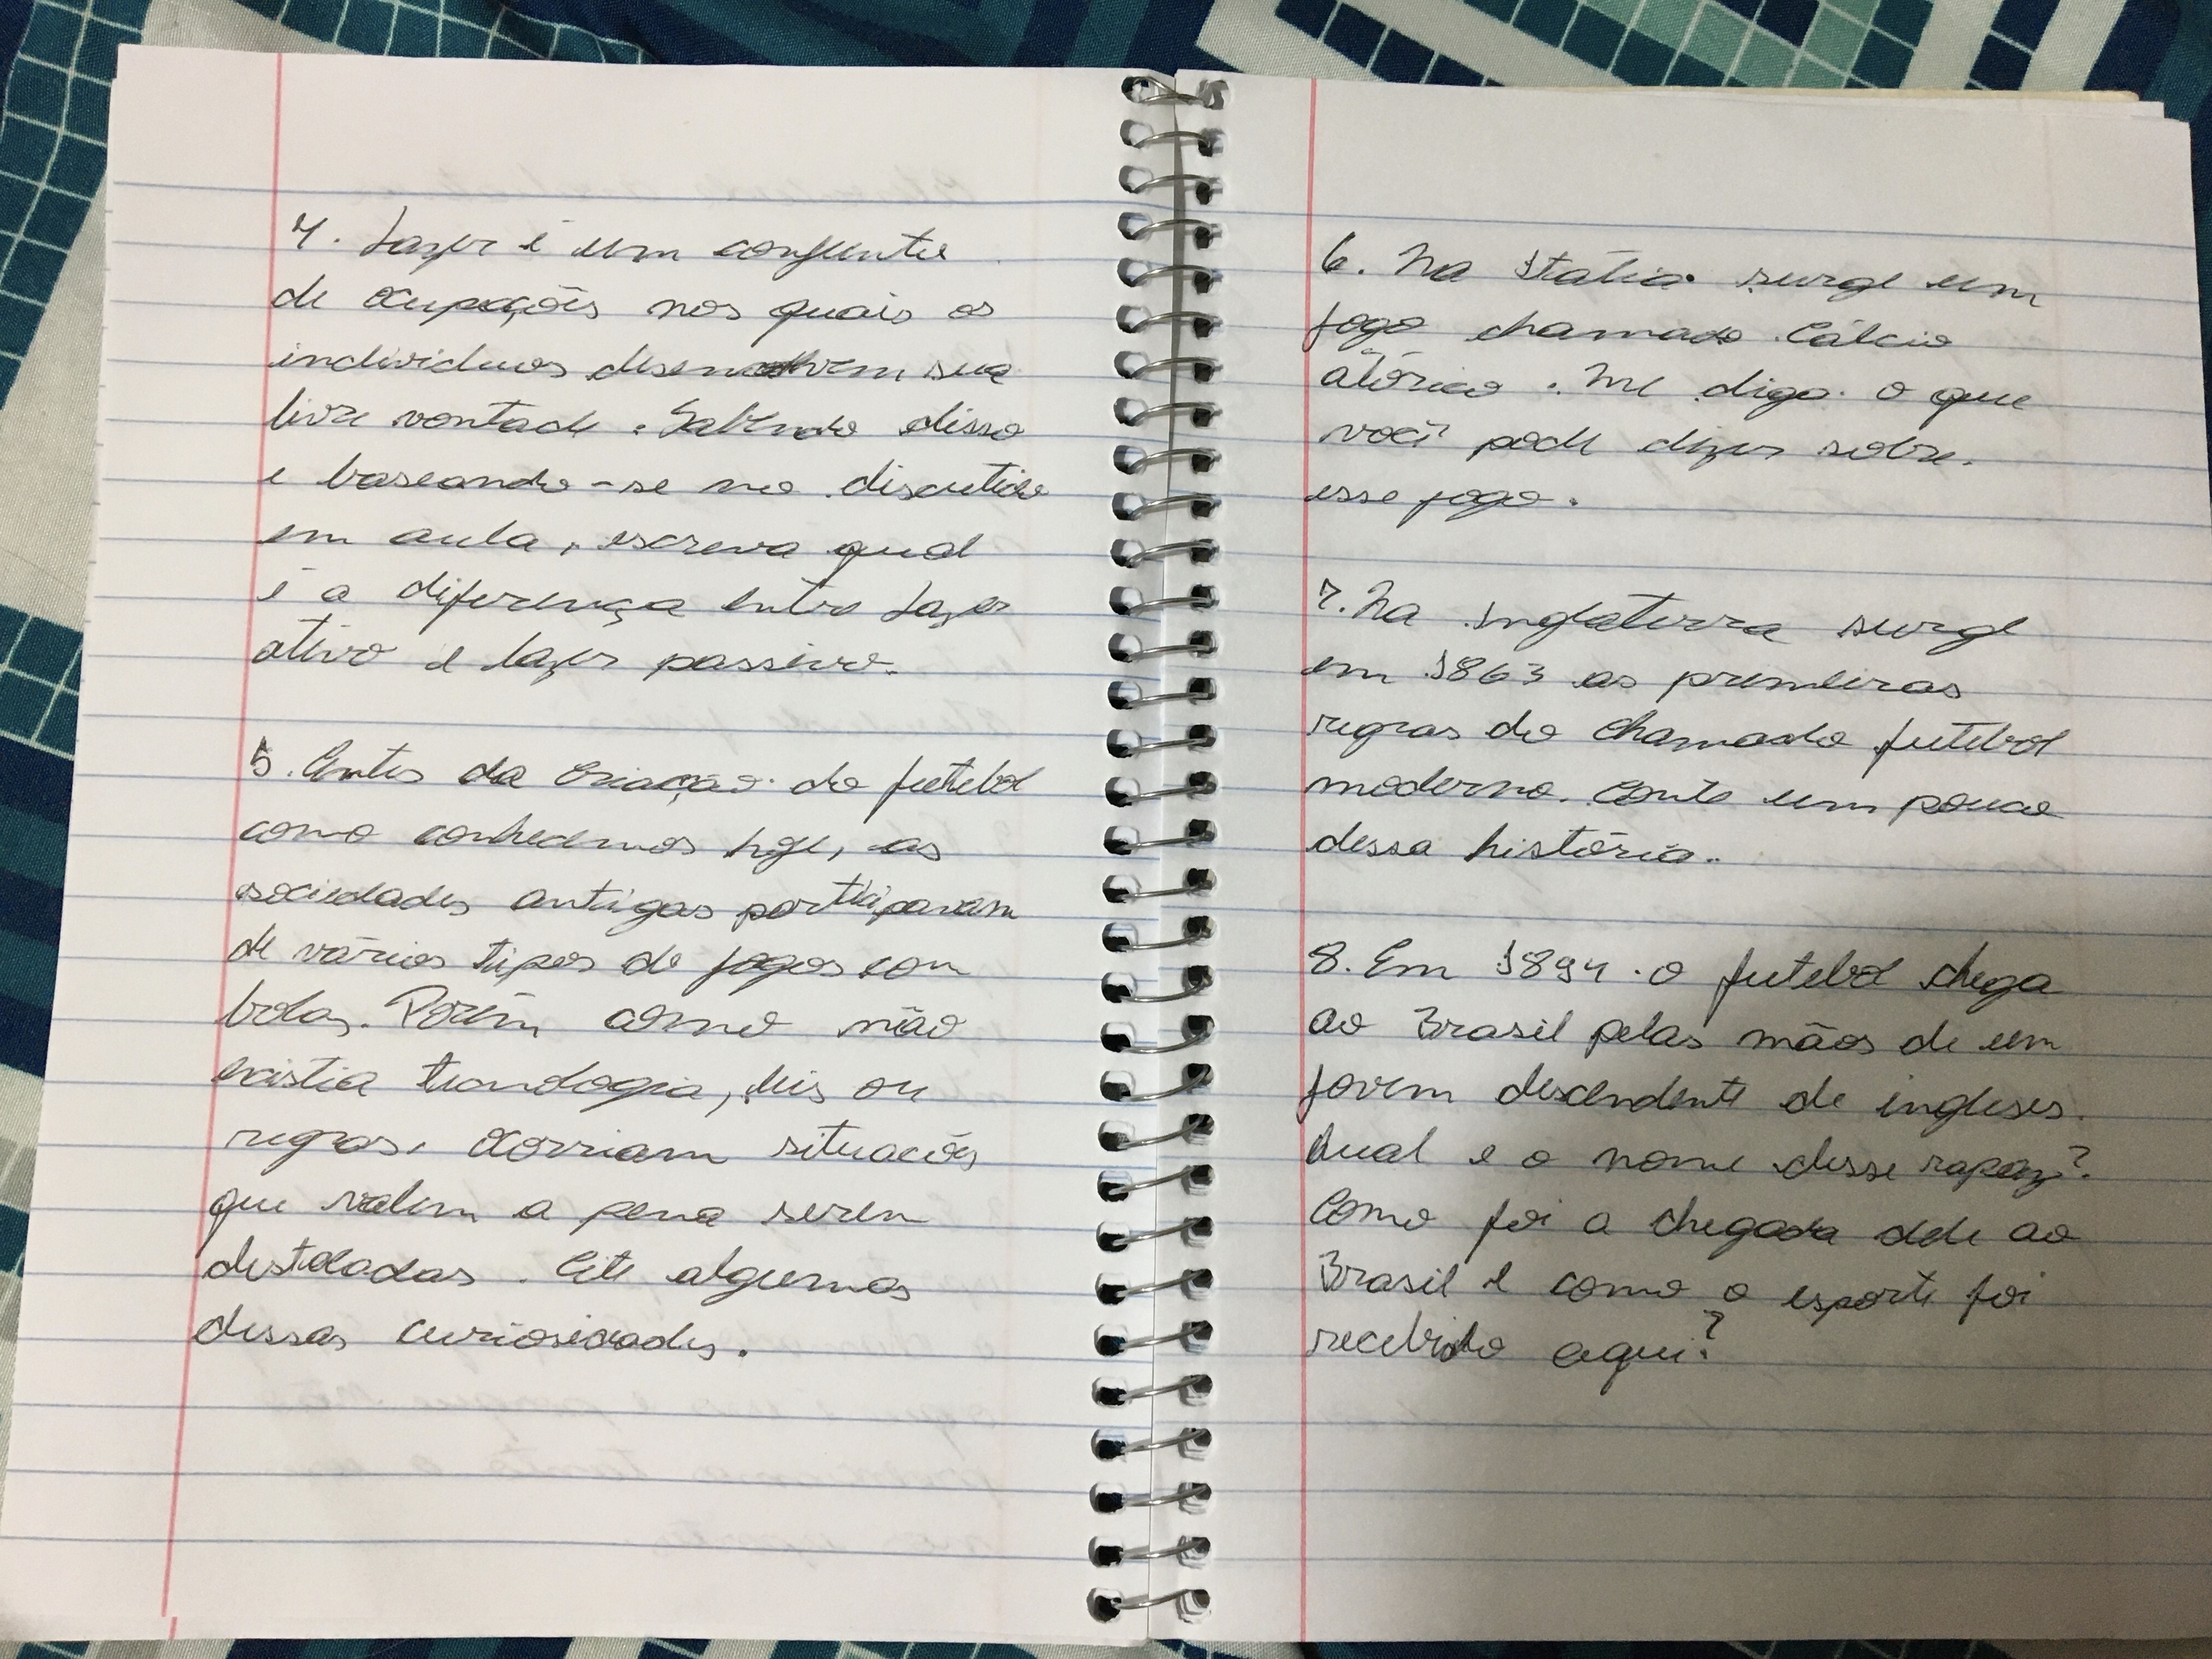 4. Lazer é um conjunto
de ocupações nos quais os
individuos desenvolvem sua
livre vontade. Sabendo disso
e baseando-se no discutido
em aula, escreva qual
é a diferença entre lazer
ativo e lazer passivo.
5. Antes da criação do futebol
como conhecemos hoje, as
sociedades antigas participavam
de vários tipos de jogos com
bolas. Porém como não
existia tecnologia, leis ou
regras, ocorriam situações
que valem a pena serem
destacadas. Cite algumas
dessas curiosidades.
6. Na Itália surge um
jogo chamado Cálcio
. Me diga o que
você pode dizer sobre
esse jogo.
7. Na Inglaterra surge
em 1863 as primeiras
regras do chamado futebol
moderno. Conte um pouco
dessa história.
8. Em 1894 o futebol chega
ao Brasil pelas mãos de um
jovem descendente de ingleses.
Qual e o nome desse rapaz?
Como foi a chegada dele ao
Brasil e como o esporte foi
recebido aqui?